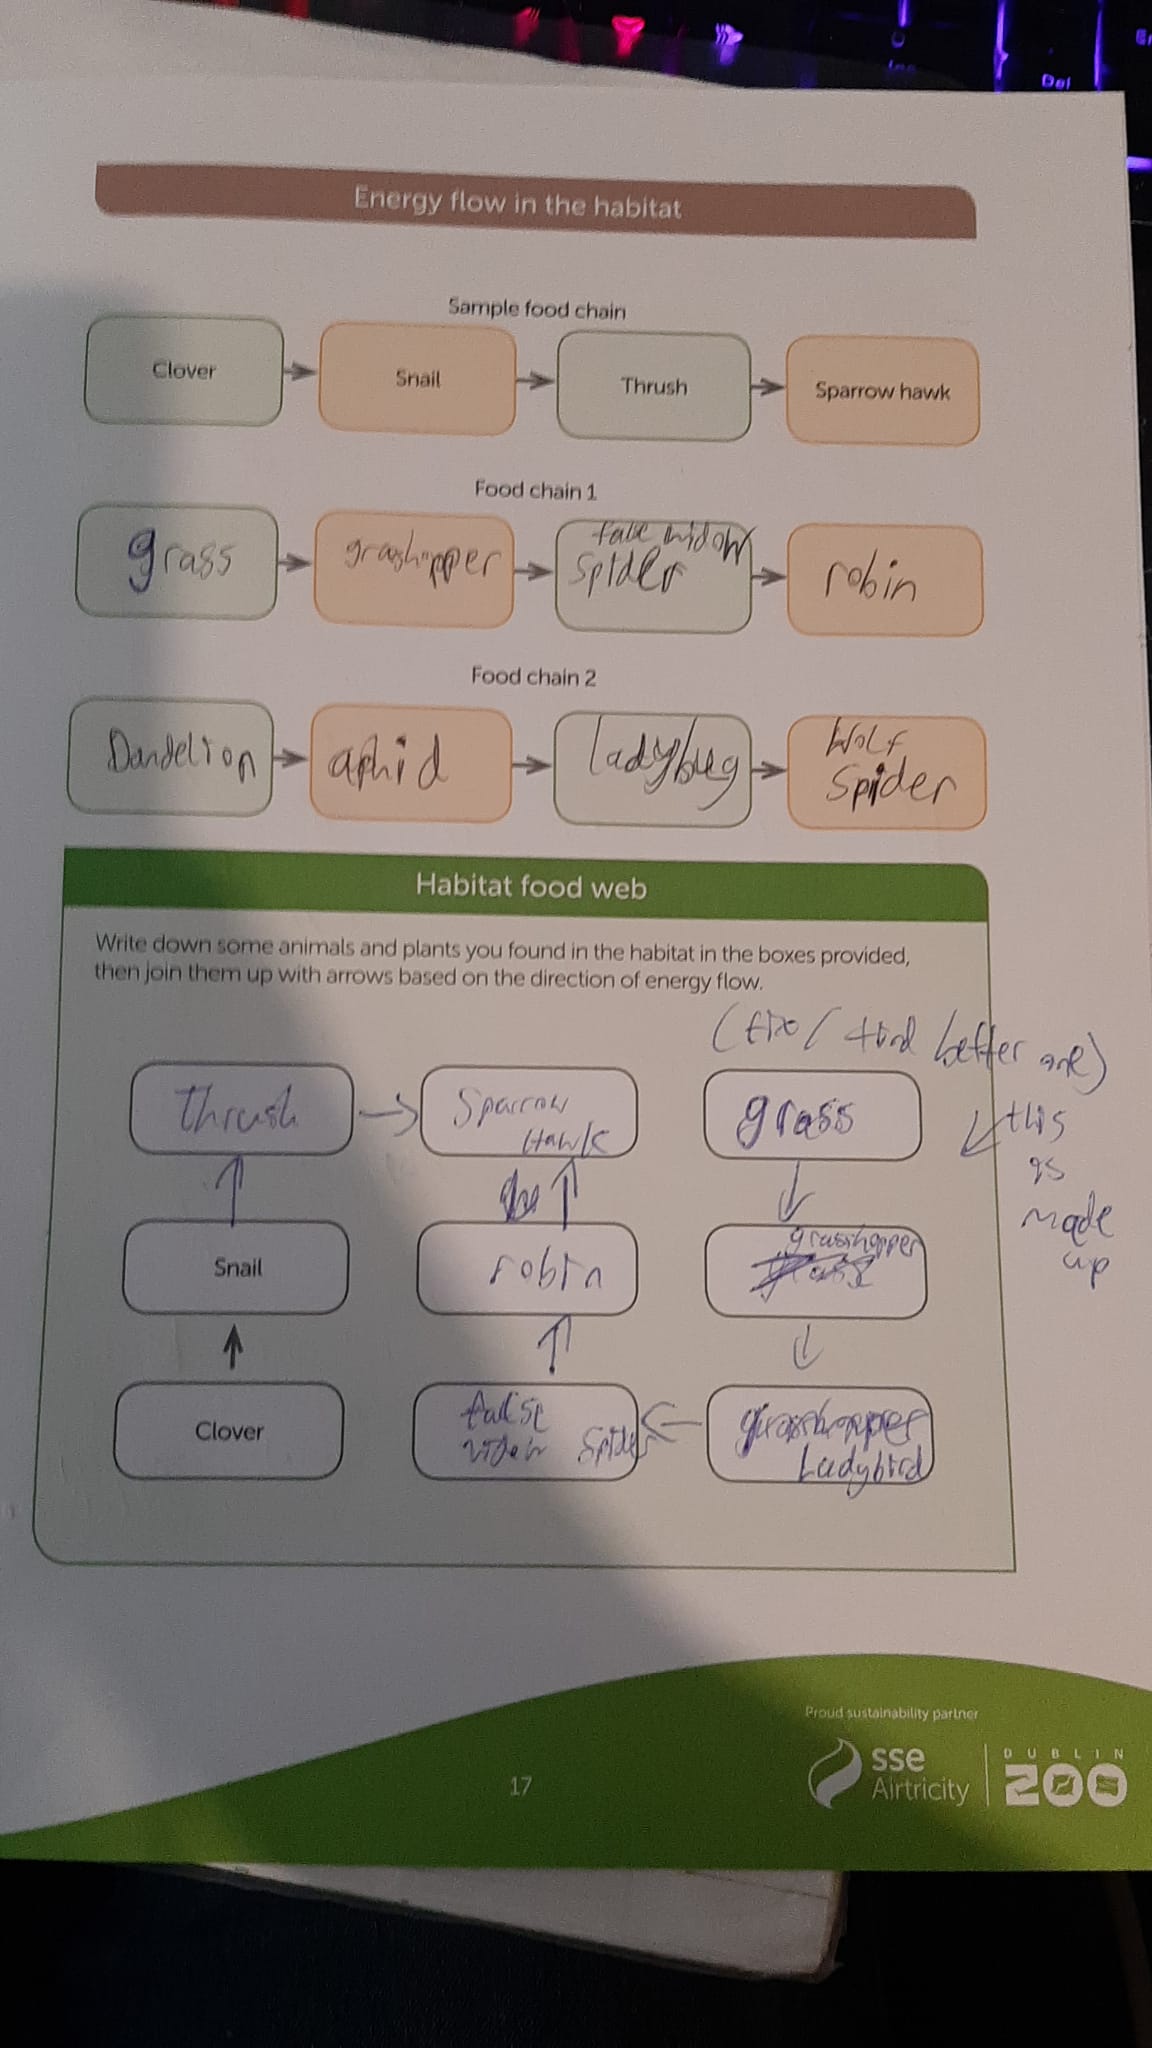 Del
Energy flow in the habitat
Sample food chain
Clover
Snail
Thrush
Sparrow hawk
Food chain 1
grass
grashopper
false widow
spider
robin
Food chain 2
Dandelion
aphid
ladybug
Wolf
Spider
Habitat food web
Write down some animals and plants you found in the habitat in the boxes provided,
then join them up with arrows based on the direction of energy flow.
(fix / find better one)
this
is
made
up
thrush
Sparrow
Hawk
grass
Snail
robin
grasshopper
Clover
false
widow Spider
grasshopper
Ladybird
Proud sustainability partner
sse
Airtricity
DUBLIN
ZOO
17